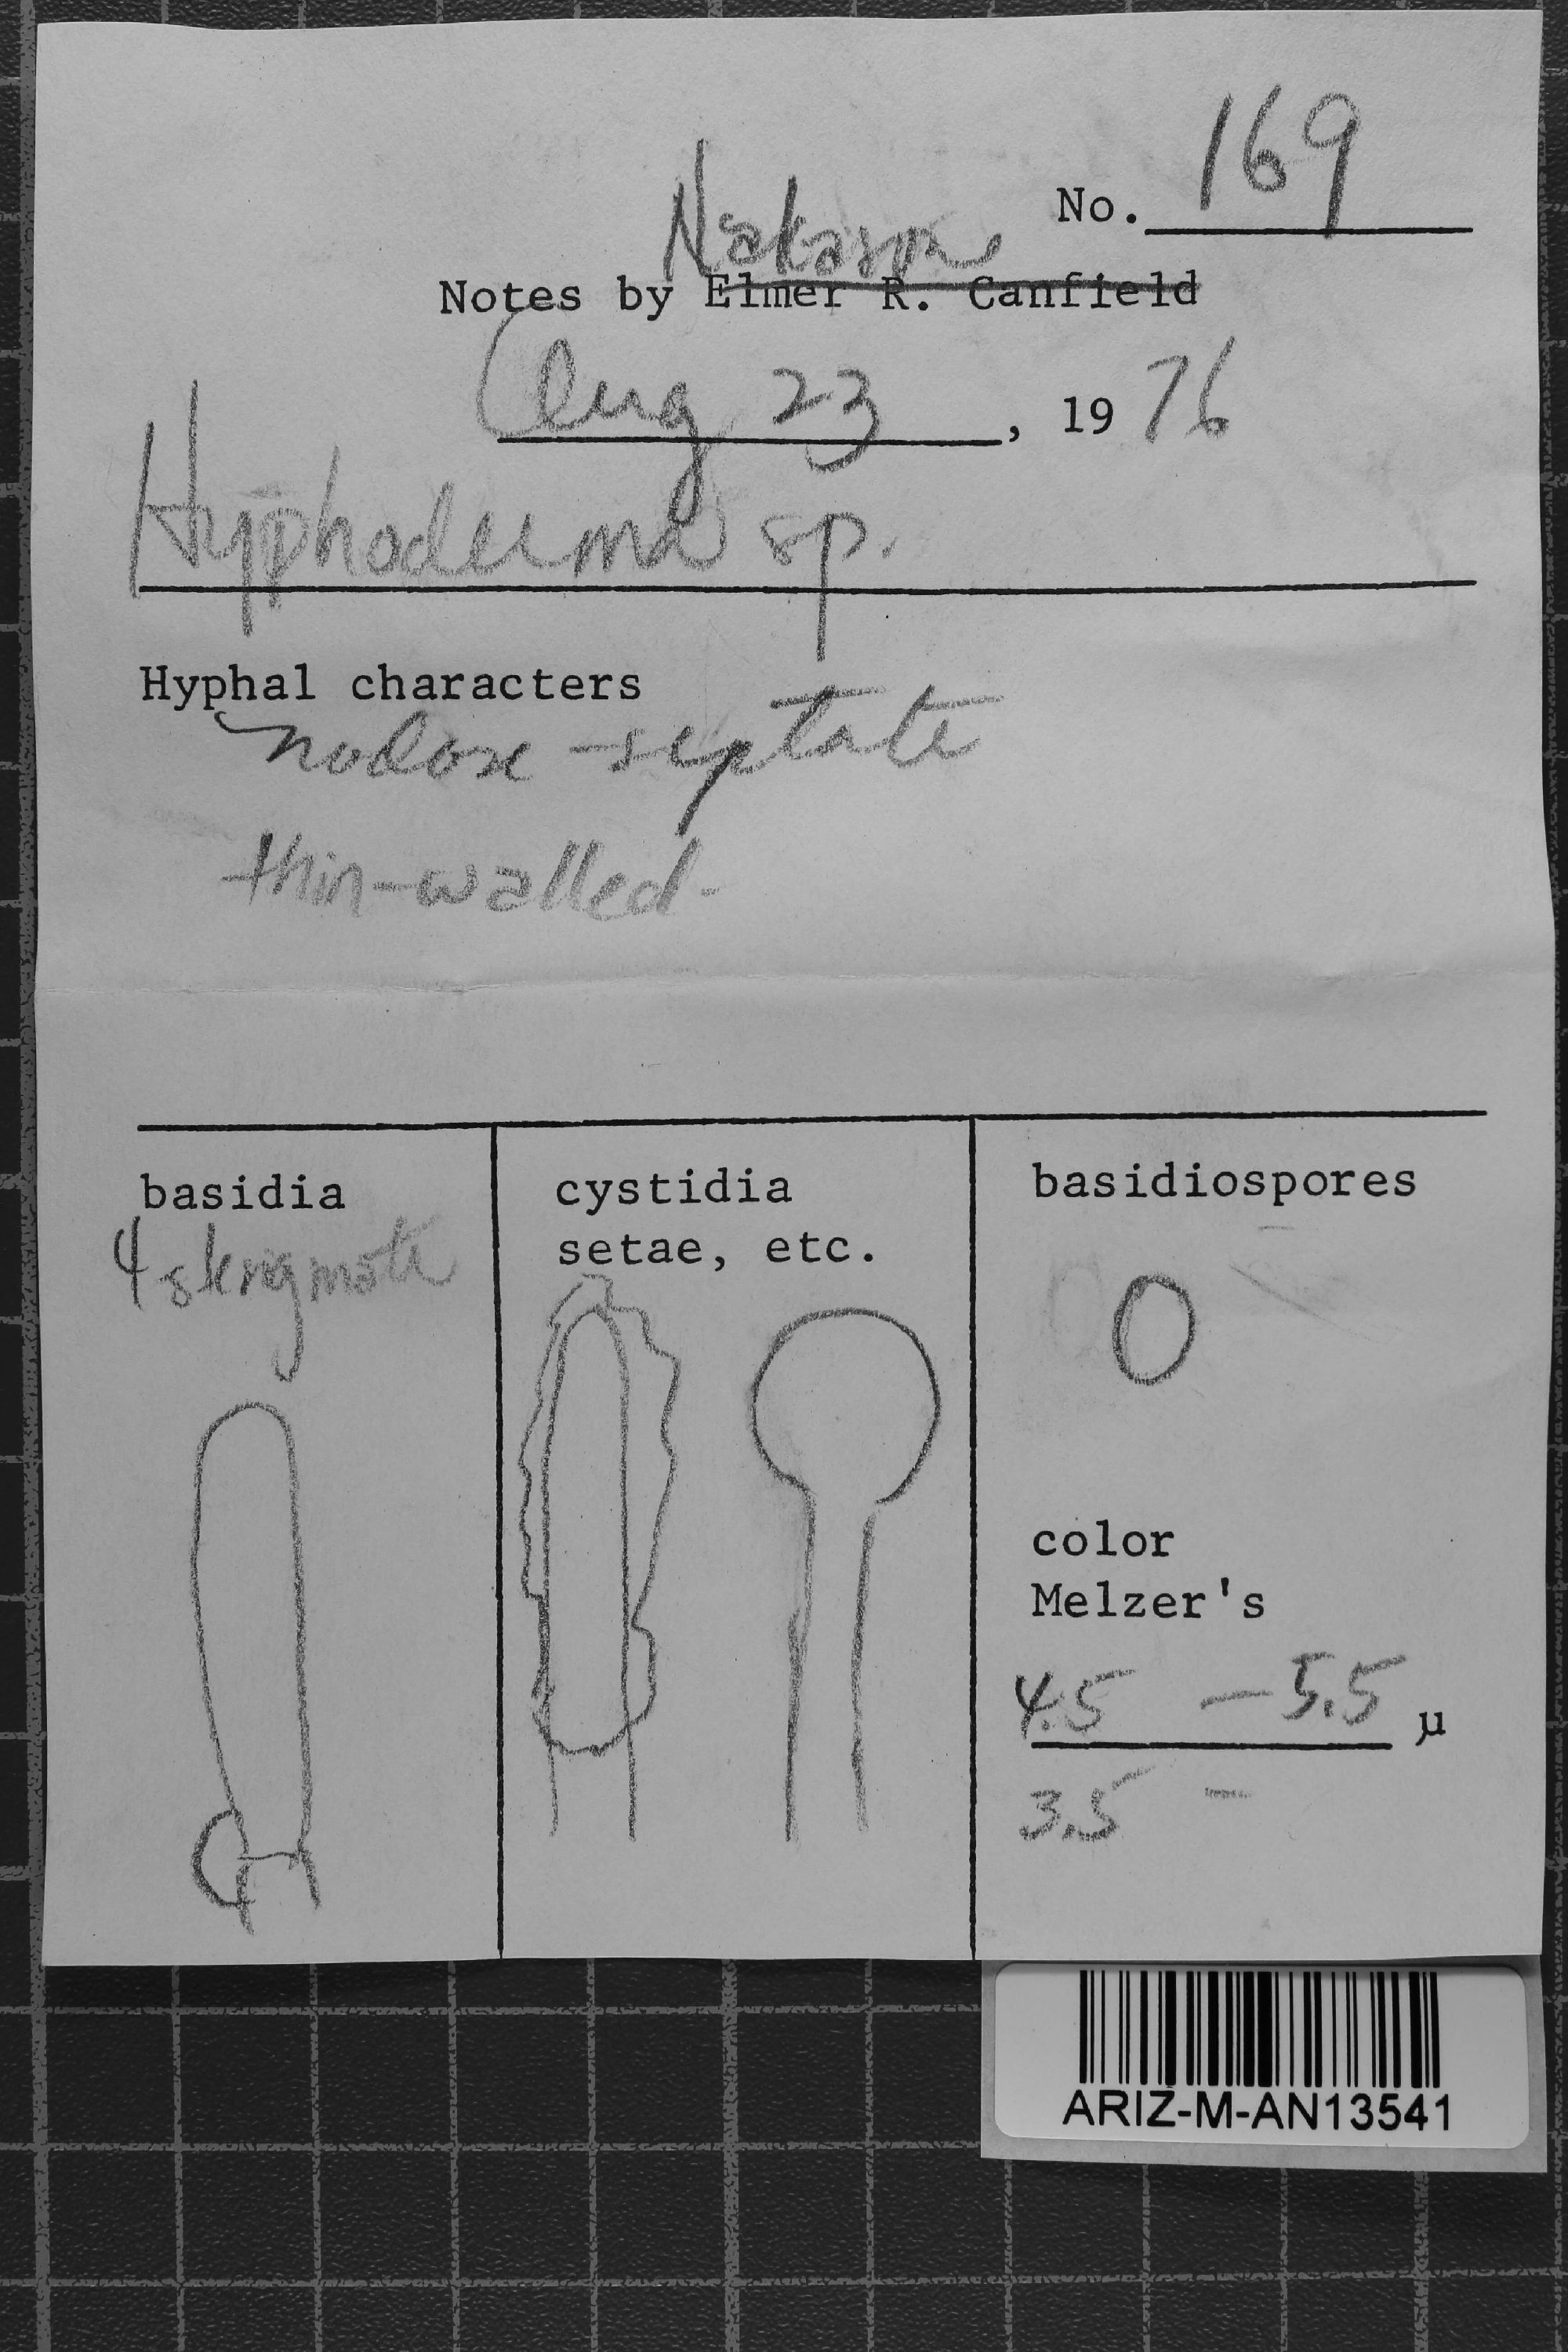 No. 169
Nakasone
Notes by Elmer R. Canfield
Aug 23, 1976
Hyphoderma sp.
Hyphal characters
nodose-septate
thin-walled.
basidia
4 sterigmate
cystidia
setae, etc.
basidiospores
color
Melzer's
4.5 - 5.5 µ
3.5 -
ARIZ-M-AN13541